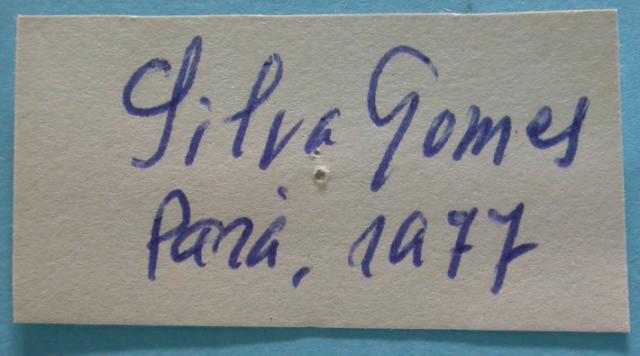 Silva Gomes
Pará, 1977